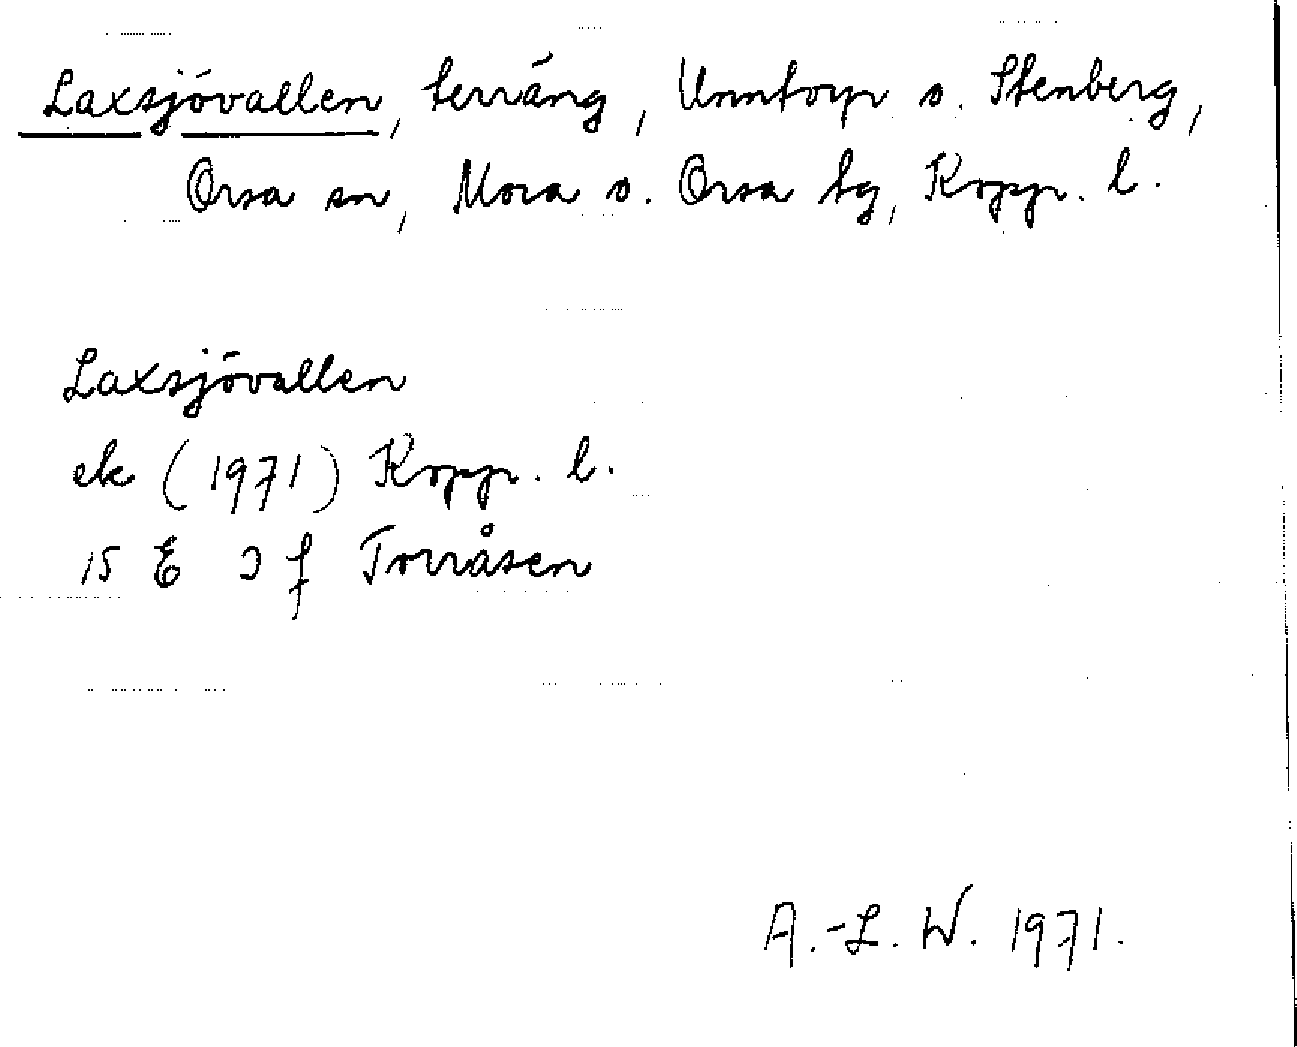 Laxsjövallen, terräng, Unntorp o. Stenberg,
Orsa sn, Mora o. Orsa tg, Kopp. l.
Laxsjövallen
ek (1971) Kopp. l.
15 E 3 f Torråsen
A.-L. W. 1971.